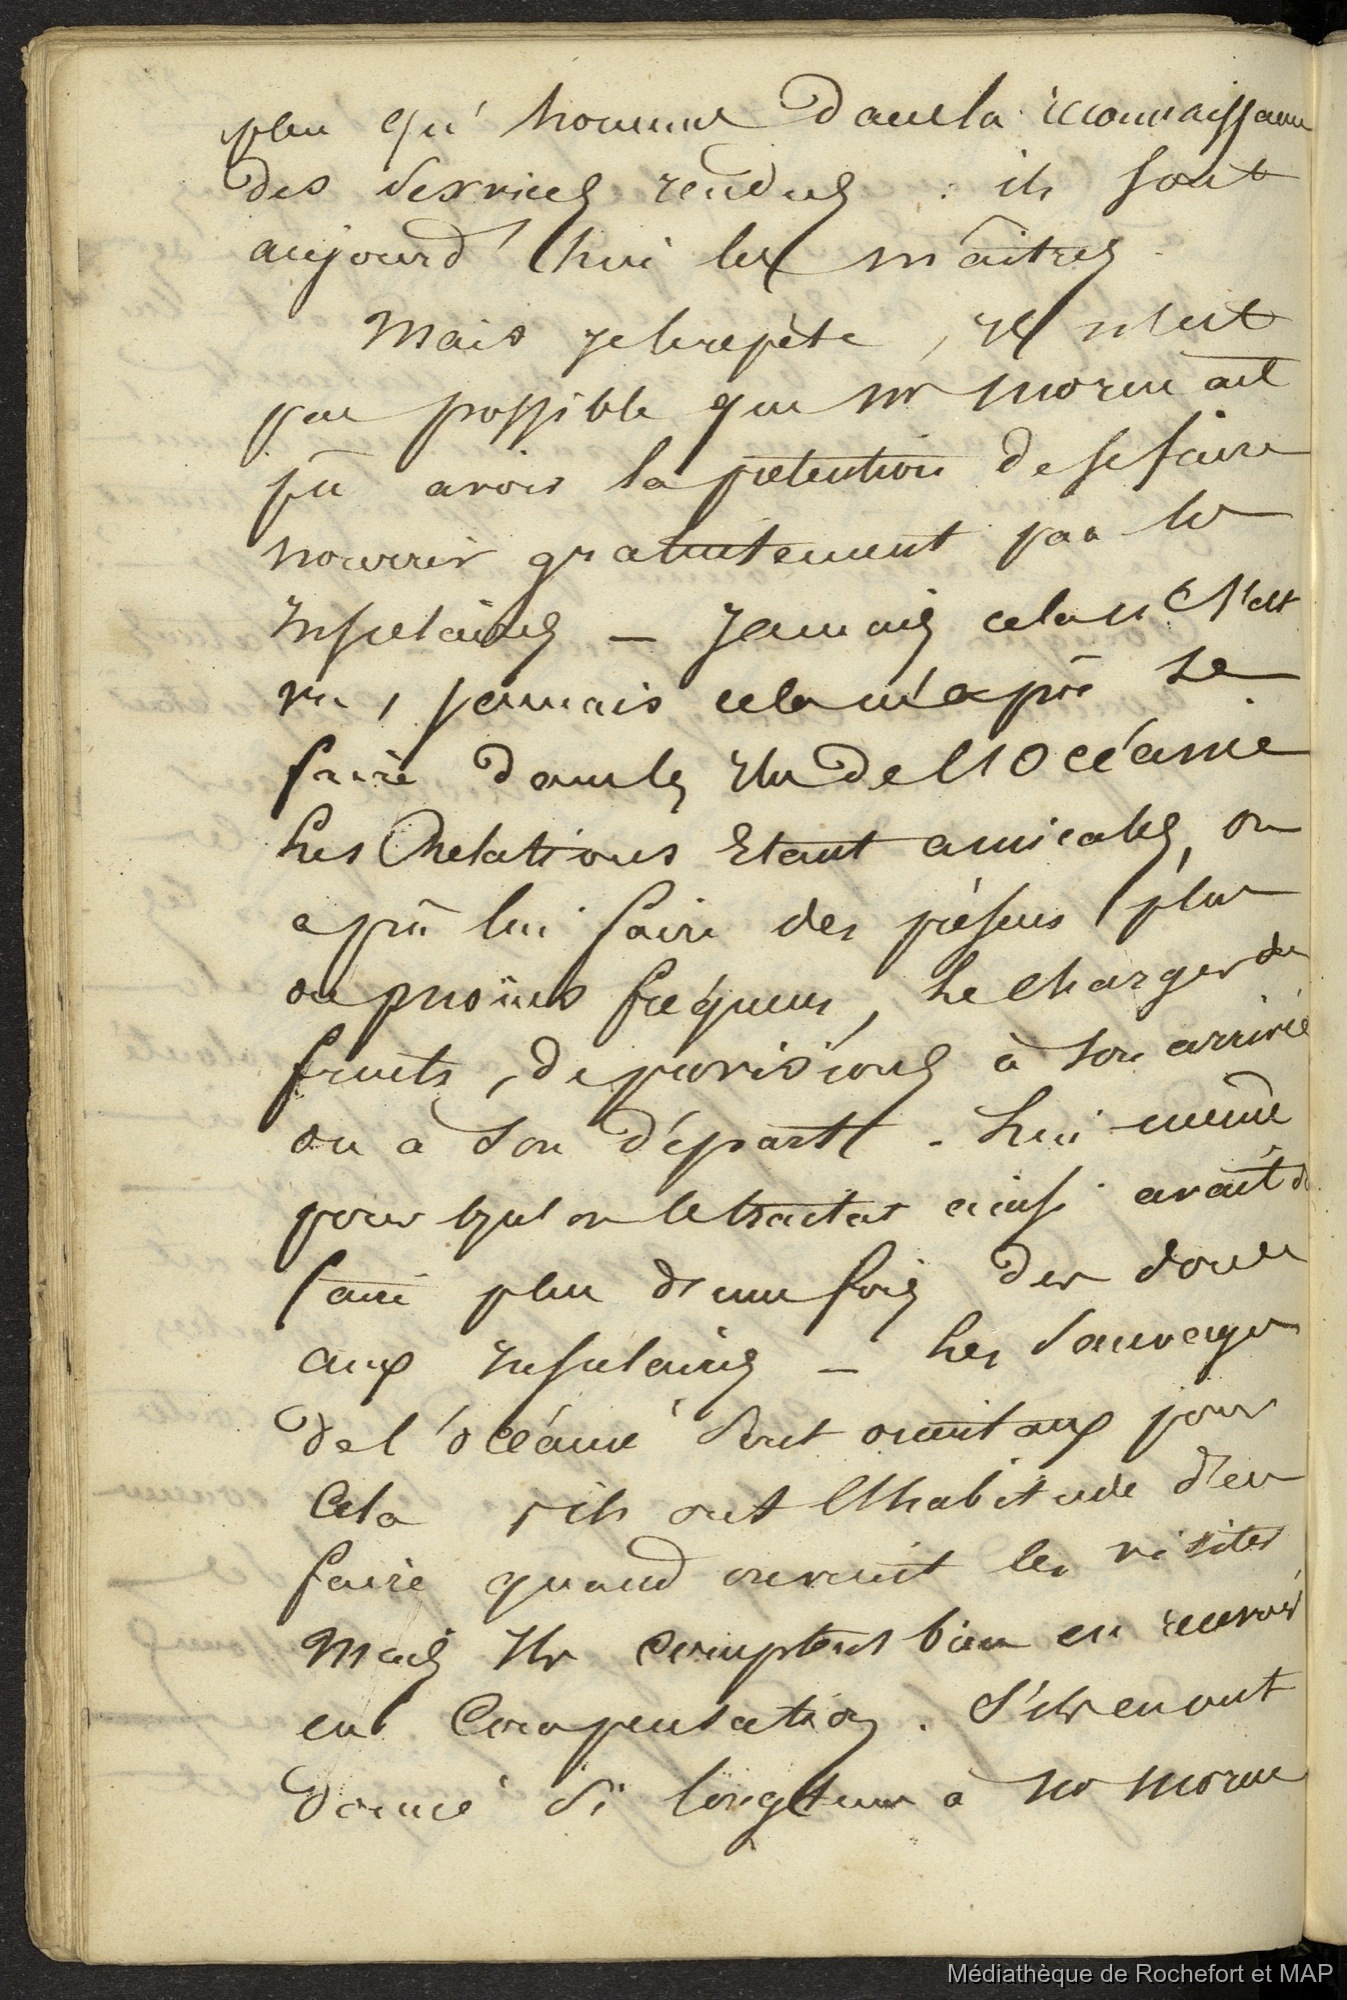 plus qu'homme dans la reconnaissance
des services rendus : ils sont
aujourd'hui les maîtres.
Mais je le repète, il n'est
pas possible que Mr morue ait
pû avoir la prétention de se faire
nourrir gratuitement par les
Insulaires — Jamais cela ne s'est
vu, jamais cela n'a pû se
faire dans les Iles de l'Océanie
Les Relations Etant amicales, on
a pû lui faire des présens plus
ou moins fréquens, le charger de
fruits, de provisions à son arrivée
ou à son départ. Lui même
pour qu'on le traitat ainsi avait dû
faire plus d'une fois des dons
aux Insulaires — Les Sauvages
de l'océanie sont orientaux pour
Cela, ils ont l'habitude d'en
faire quand on vient les visiter
Mais Ils comptent bien en recevoir
en Compensation. S'ils en ont
donné si longtems à Mr morue
Médiathèque de Rochefort et MAP